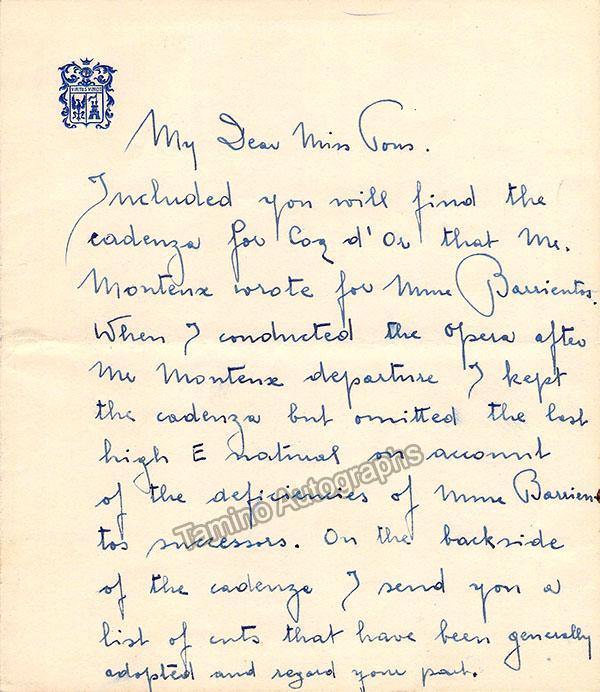 VIRTUS VINCIT
My Dear Miss Pons.
Included you will find the
cadenza for Coq d'Or that Mr.
Monteux wrote for Mme Barrientos.
When I conducted the Opera after
Mr Monteux departure I kept
the cadenza but omitted the last
high E natural on account
of the deficiencies of Mme Barrien
tos successors. On the backside
of the cadenza I send you a
list of cuts that have been generally
adopted and regard your part.
Tamino Autographs